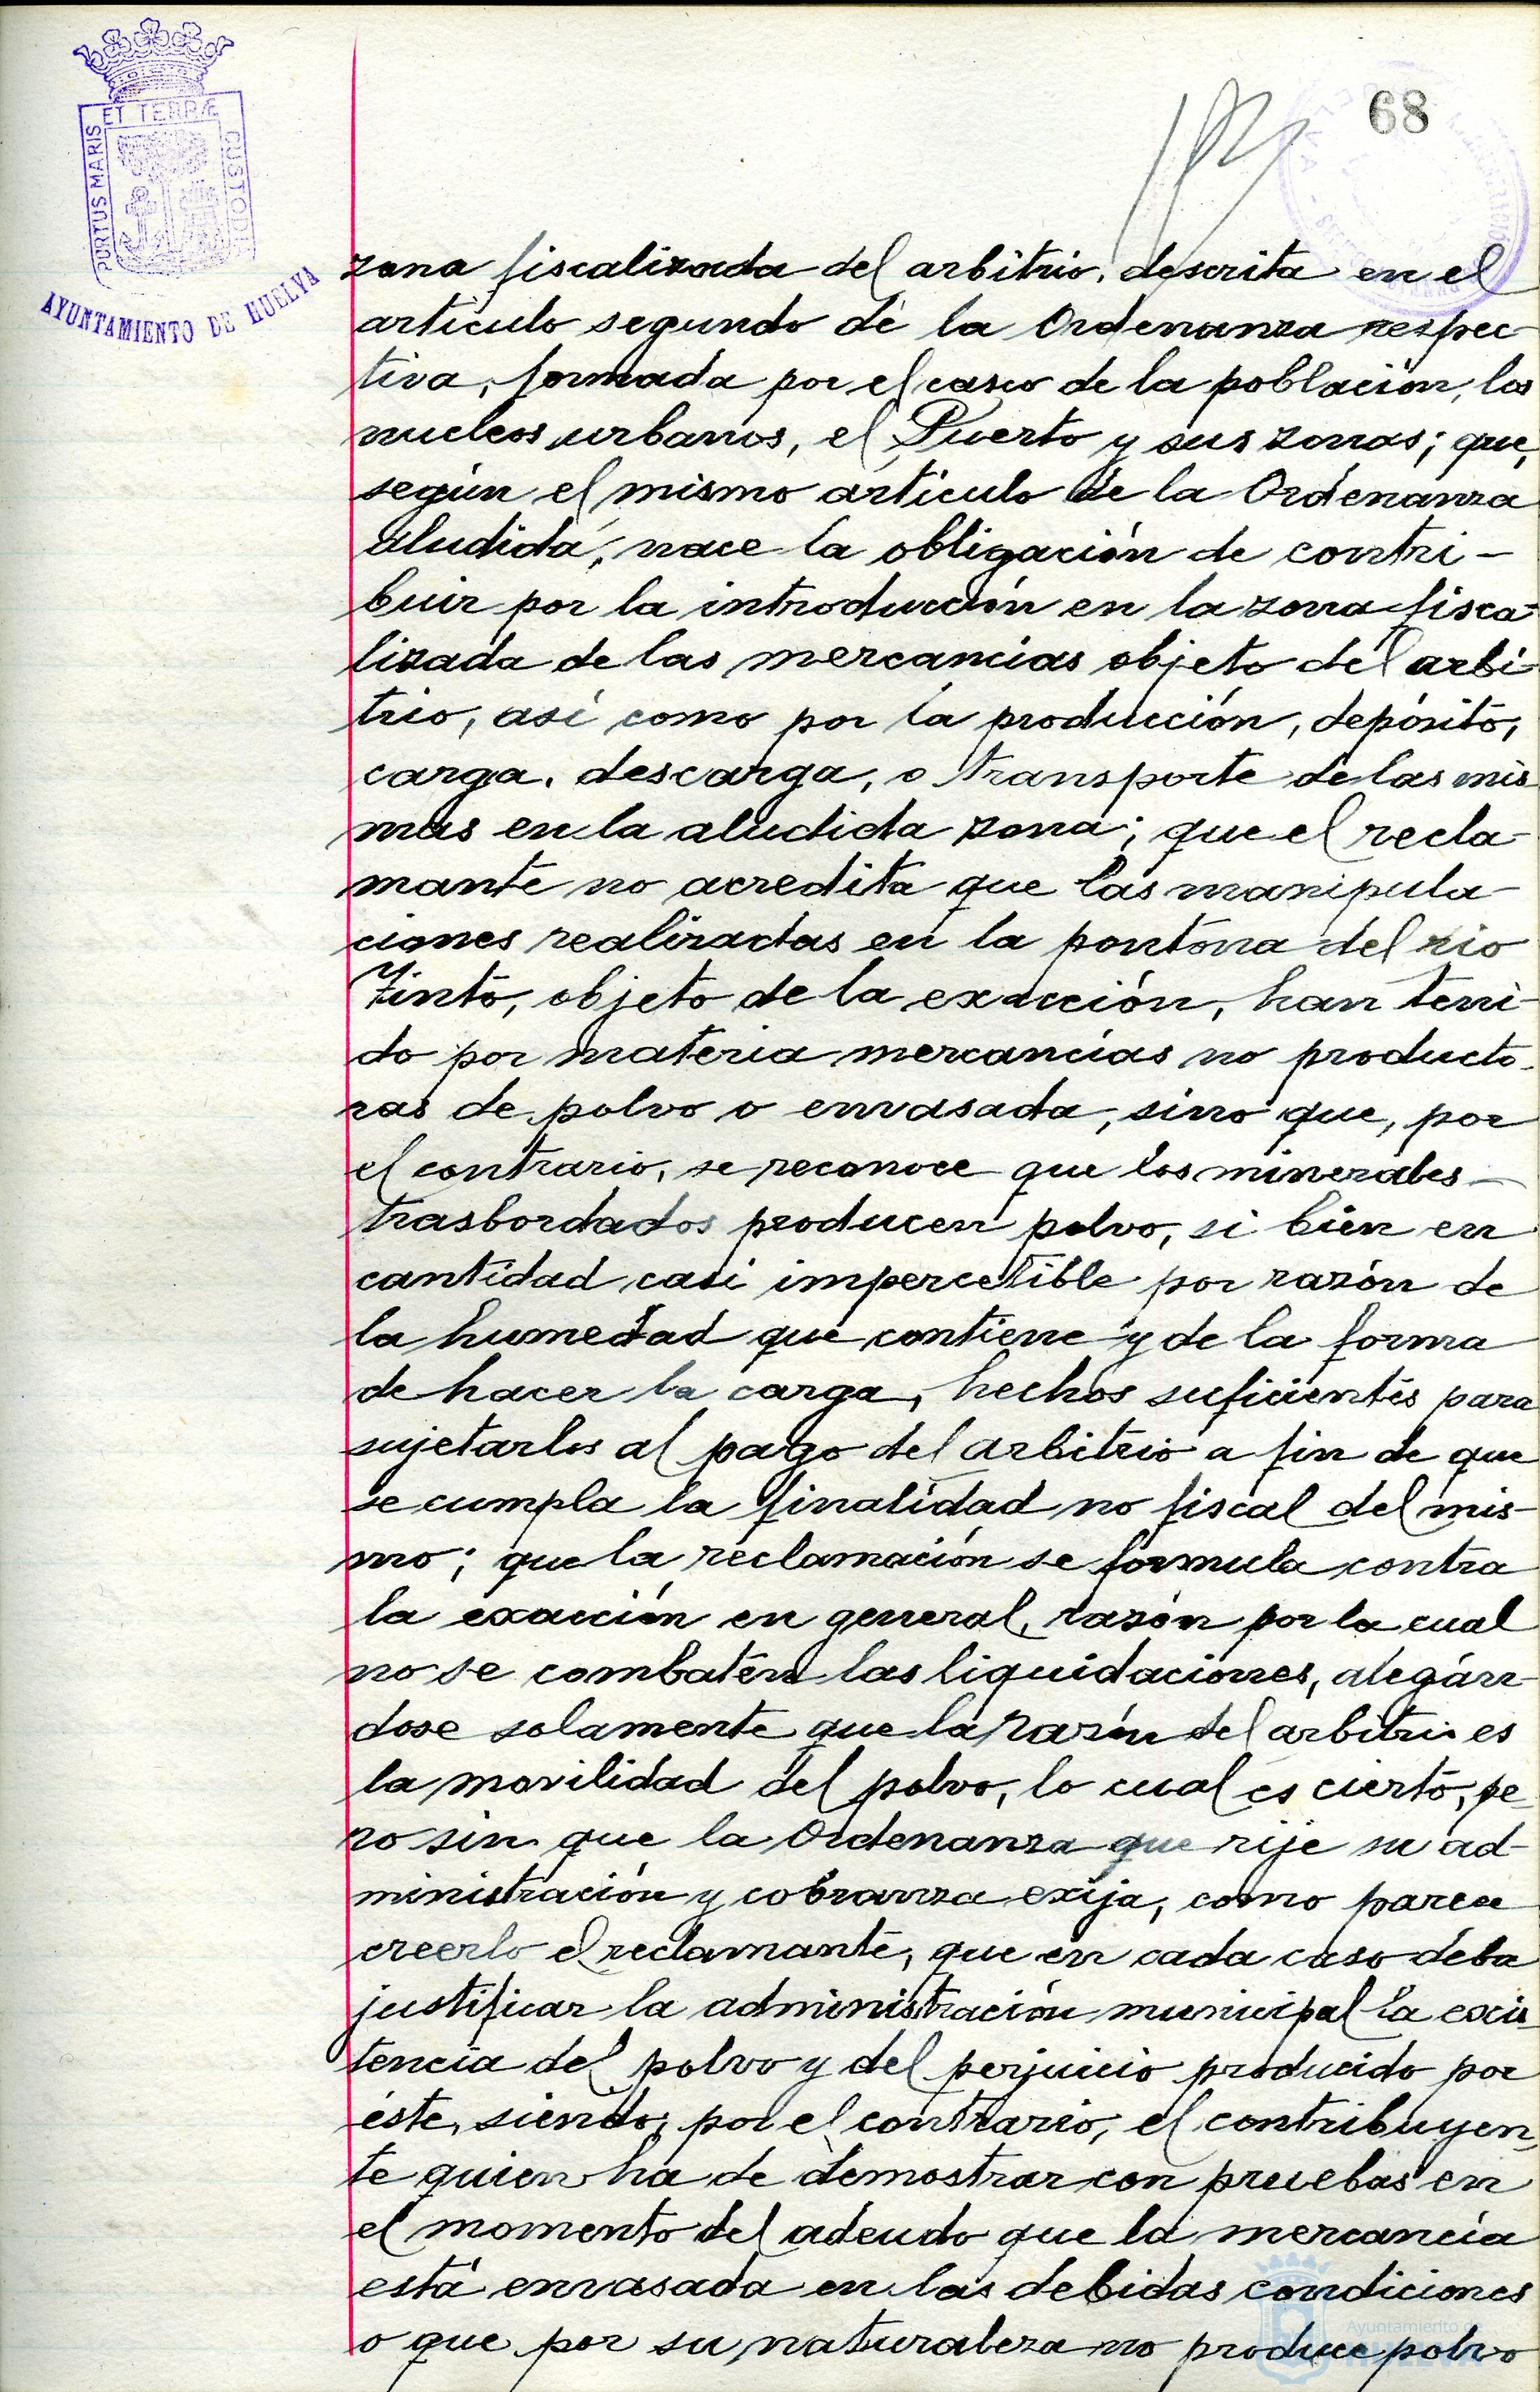 68
PORTUS MARIS ET TERRÆ CUSTODIA
AYUNTAMIENTO DE HUELVA
zona fiscalizada del arbitrio, descrita en el
artículo segundo de la Ordenanza respec-
tiva, formada por el casco de la población, los
nucleos urbanos, el Puerto y sus zonas; que,
según el mismo artículo de la Ordenanza
aludida, nace la obligación de contri-
buir por la introducción en la zona fisca-
lizada de las mercancias objeto del arbi-
trio, así como por la producción, depósito,
carga, descarga, o transporte de las mis-
mas en la aludida zona; que el recla-
mante no acredita que las manipula-
ciones realizadas en la pontona del rio
Tinto, objeto de la exacción, han teni-
do por materia mercancías no producto-
ras de polvo o envasada, sino que, por
el contrario, se reconoce que los minerales
trasbordados producen polvo, si bien en
cantidad casi impercetible por razón de
la humedad que contiene y de la forma
de hacer la carga, hechos suficientes para
sujetarlos al pago del arbitrio a fin de que
se cumpla la finalidad no fiscal del mis-
mo; que la reclamación se formula contra
la exacción en general, razón por la cual
no se combaten las liquidaciones, alegán-
dose solamente que la razón del arbitrio es
la movilidad del polvo, lo cual es cierto, pe-
ro sin que la Ordenanza que rije su ad-
ministración y cobranza exija, como parece
creerlo el reclamante, que en cada caso deba
justificar la administración municipal la exis-
tencia del polvo y del perjuicio producido por
éste, siendo, por el contrario, el contribuyen-
te quien ha de demostrar con pruebas en
el momento del adeudo que la mercancía
está envasada en las debidas condiciones
o que por su naturaleza no produce polvo
Ayuntamiento de
HUELVA